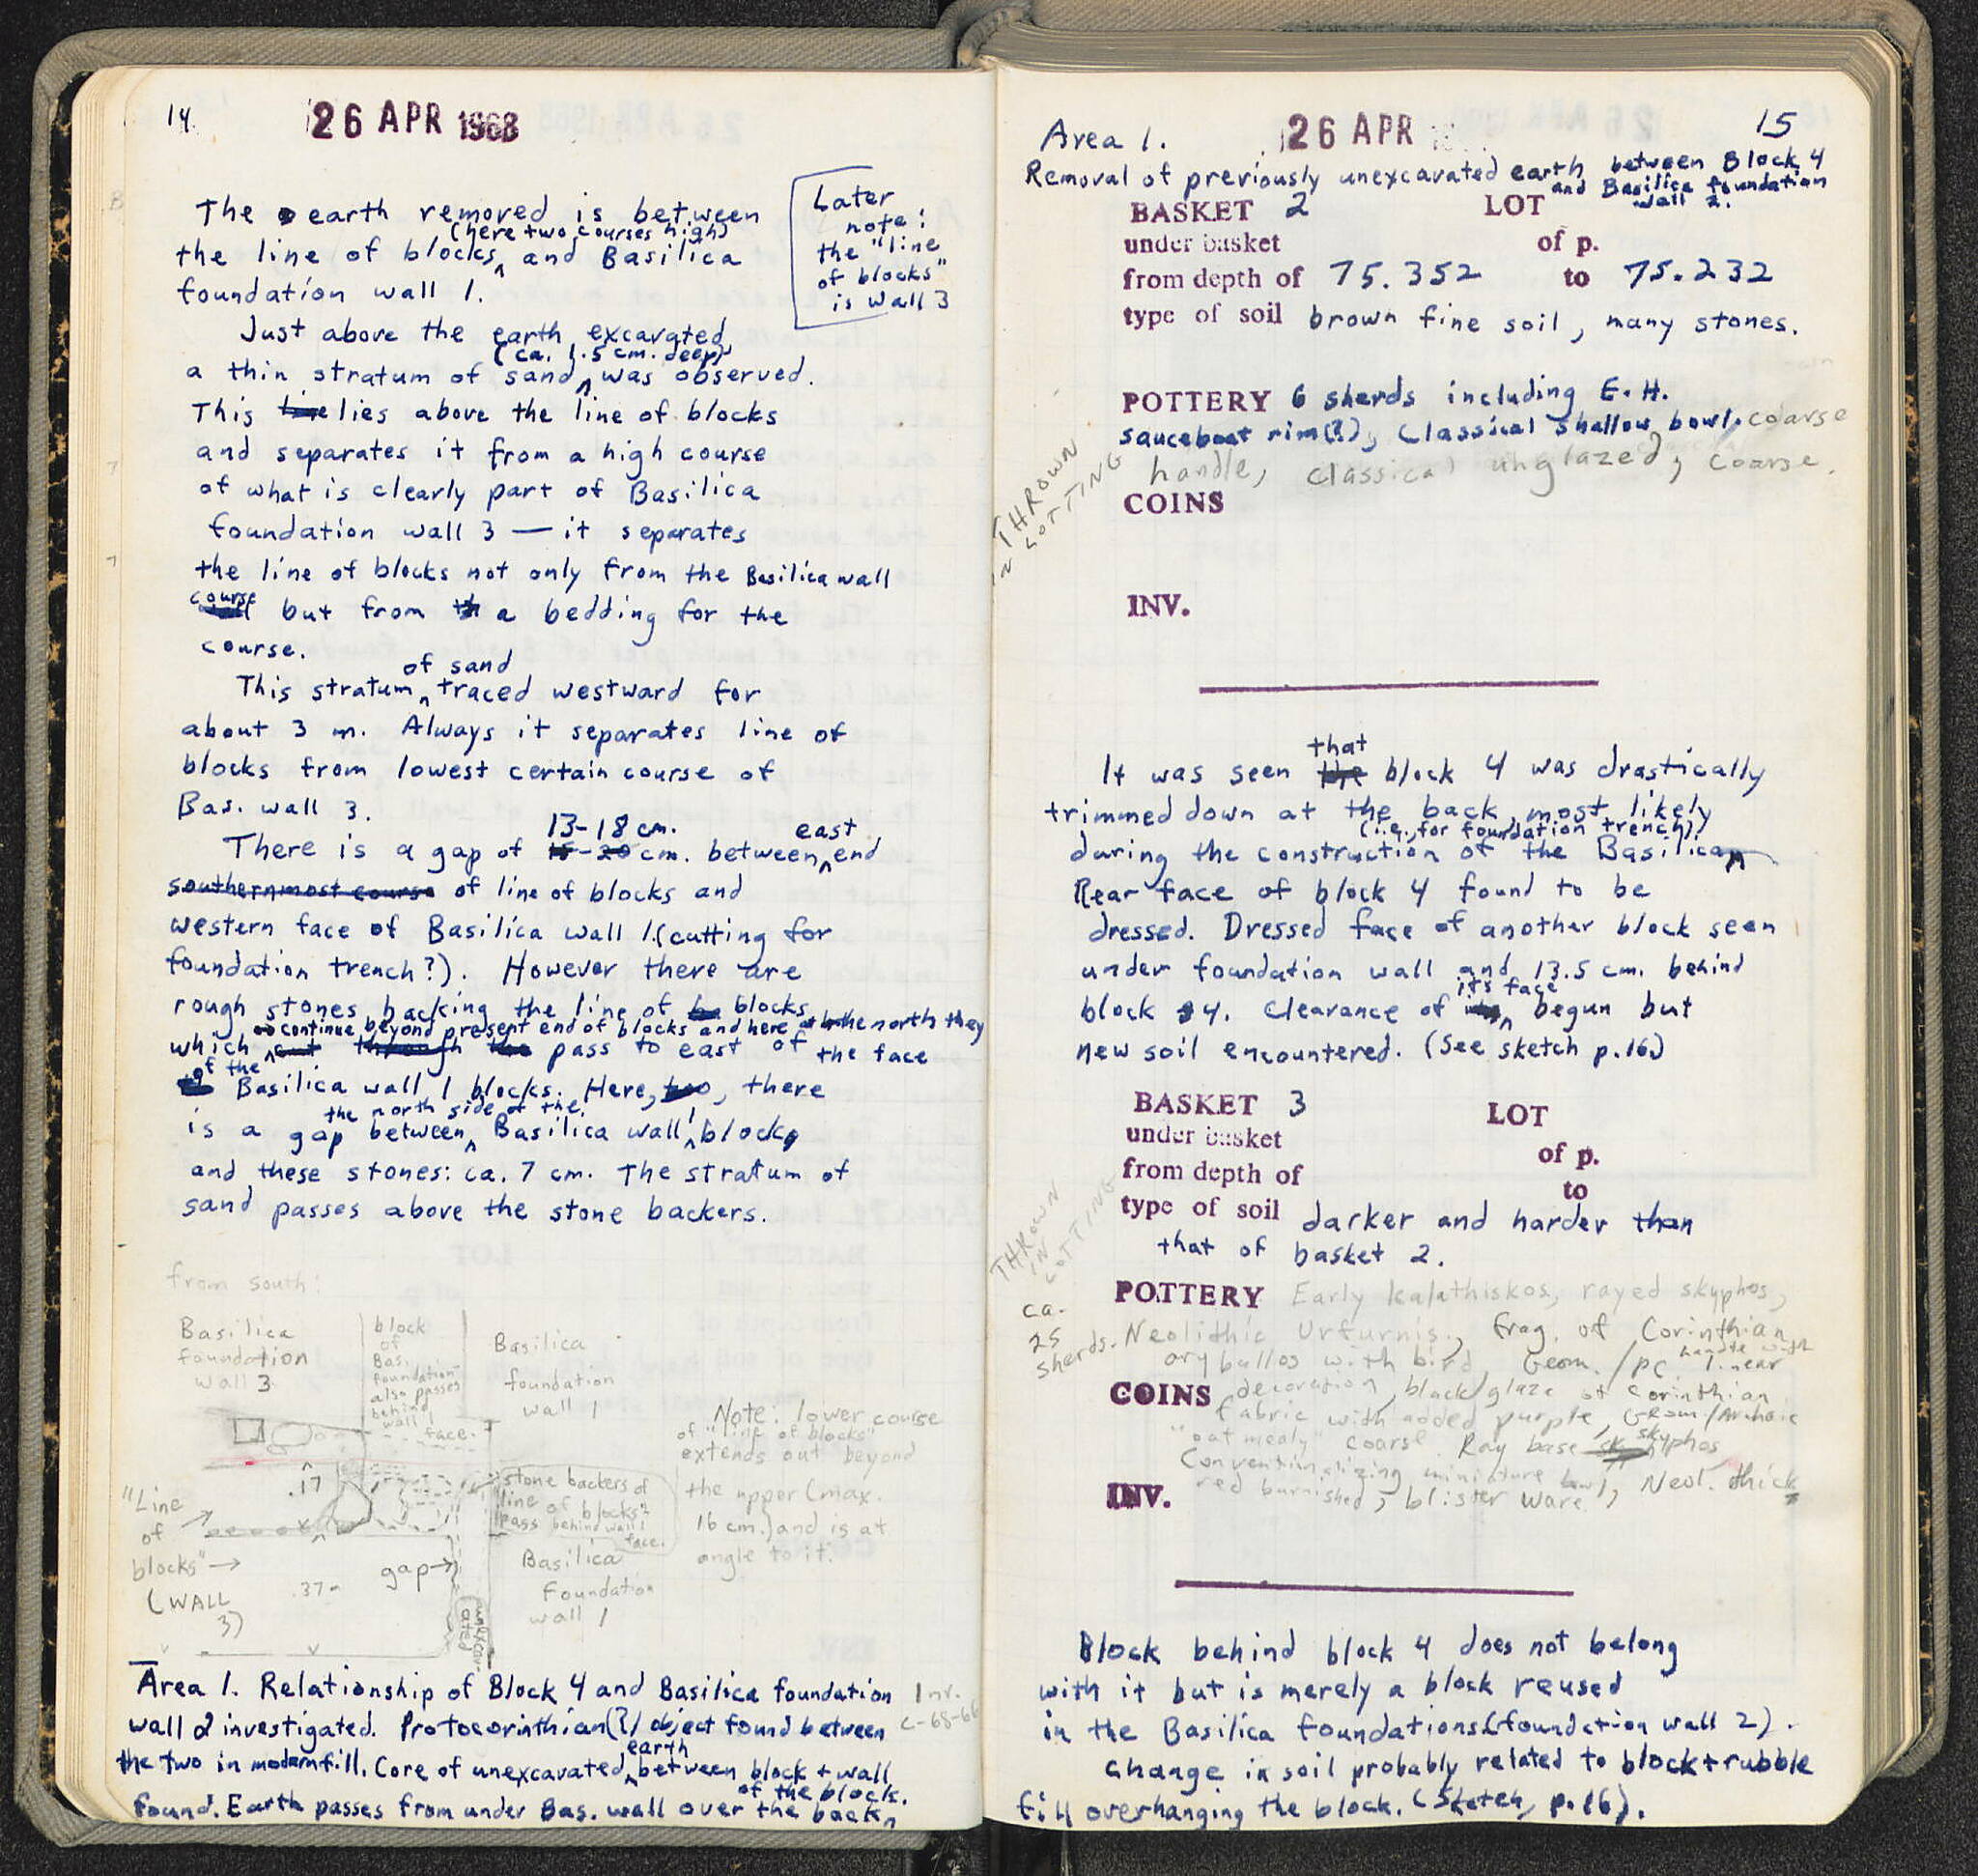 14
26 APR 1968
The earth removed is between
(here two courses high)
the line of blocks, and Basilica
foundation wall 1.
Later
note:
the "line
of blocks"
is Wall 3
Just above the earth excavated
(ca. 1.5 cm. deep)
a thin stratum of sand was observed.
This line lies above the line of blocks
and separates it from a high course
of what is clearly part of Basilica
foundation wall 3 — it separates
the line of blocks not only from the Basilica wall
course
wall but from th a bedding for the
course.
of sand
This stratum traced westward for
about 3 m. Always it separates line of
blocks from lowest certain course of
Bas. wall 3.
13-18 cm. east
There is a gap of 15-20 cm. between end
southernmost course of line of blocks and
western face of Basilica wall 1 (cutting for
foundation trench?). However there are
rough stones backing the line of blocks
continue beyond present end of blocks and here the north they
which cut through the pass to east of the face
of the
Basilica wall 1 blocks. Here, too, there
the north side of the 1
is a gap between Basilica wall blocks
and these stones: ca. 7 cm. The stratum of
sand passes above the stone backers.
from south:
Basilica
foundation
wall 3
block
of
Bas.
foundation
also passes
behind
wall 1
face.
Basilica
foundation
wall 1
Note: lower course
of "line of blocks"
extends out beyond
the upper (max.
16 cm.) and is at
angle to it.
.17
"Line
of
blocks" →
(WALL
3)
.37
gap →
stone backers of
line of blocks
pass behind wall 1
face.
Basilica
Foundation
wall 1
unexcavated
Area 1. Relationship of Block 4 and Basilica foundation
Inv.
C-68-66
wall 2 investigated. Protocorinthian(?) object found between
earth
the two in modern fill. Core of unexcavated between block + wall
of the block.
found. Earth passes from under Bas. wall over the back
15
Area 1.
26 APR
Removal of previously unexcavated earth between Block 4
and Basilica foundation
wall 2.
BASKET 2 LOT
under basket of p.
from depth of 75.352 to 75.232
type of soil brown fine soil, many stones.
POTTERY 6 sherds including E.H.
sauceboat rim(?), Classical shallow bowl, coarse
handle, classical unglazed, coarse.
THROWN
IN LOTTING
COINS
INV.
that
It was seen the block 4 was drastically
trimmed down at the back, most likely
(i.e., for foundation trench).
during the construction of the Basilica
Rear face of block 4 found to be
dressed. Dressed face of another block seen
under foundation wall and 13.5 cm. behind
its face
block 4. Clearance of begun but
new soil encountered. (See sketch p.16.)
BASKET 3 LOT
under basket of p.
from depth of to
type of soil darker and harder than
that of basket 2.
THROWN
IN
LOTTING
ca.
25
sherds.
POTTERY Early kalathiskos, rayed skyphos,
Neolithic Urfurnis, frag. of Corinthian
aryballos with bird, Geom./PC handle with linear
COINS decoration, black glaze of Corinthian
fabric with added purple, Geom./Archaic
"oatmealy" coarse. Ray base skyphos
Conventionalizing miniature bowl, Neol. thick
INV. red burnished, blister ware.
Block behind block 4 does not belong
with it but is merely a block reused
in the Basilica foundations (foundation wall 2).
Change in soil probably related to block + rubble
fill overhanging the block. (Sketch, p.16).